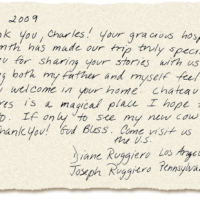 2009
nk you, Charles! Your gracious hosp
nth has made our trip truly speci
u for sharing your stories with us
ng both my father and myself feel
y welcome in your home. Chateau
res is a magical place I hope
o. If only to see my new cow
Thank You! God Bless. Come visit us
the U.S.
Diane Ruggiero Los Angel
Joseph Ruggiero Pennsylva